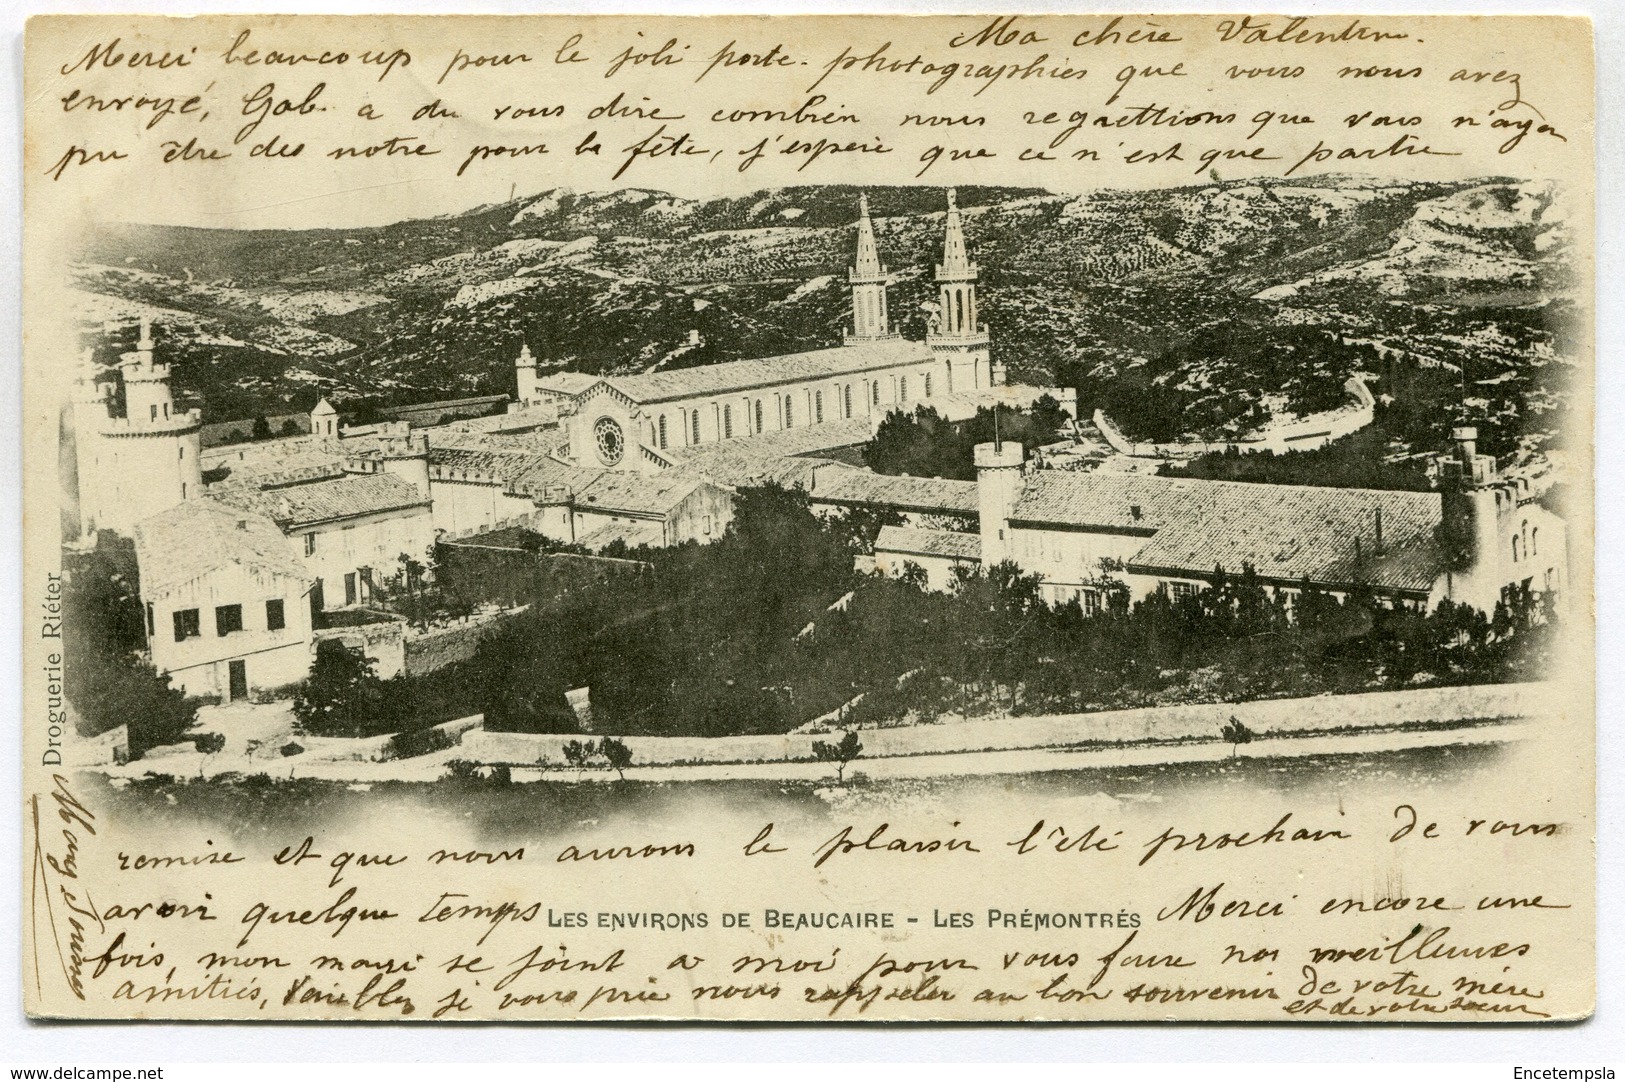 Ma chère Valentine.
Merci beaucoup pour le joli porte-photographies que vous nous avez
envoyé, Gab. a du vous dire combien nous regrettions que vous n'ayez
pu être des notre pour la fête, j'espère que ce n'est que partie
remise et que nous aurons le plaisir l'été prochain de vous
avoir quelque temps Merci encore une
LES ENVIRONS DE BEAUCAIRE - LES PRÉMONTRÉS
fois, mon mari se joint a moi pour vous faire nos meilleures
amitiés, Veuillez je vous prie nous rappeler au bon souvenir de votre mère
et de votre soeur
Droguerie Riéter
www.delcampe.net
Encetempsla